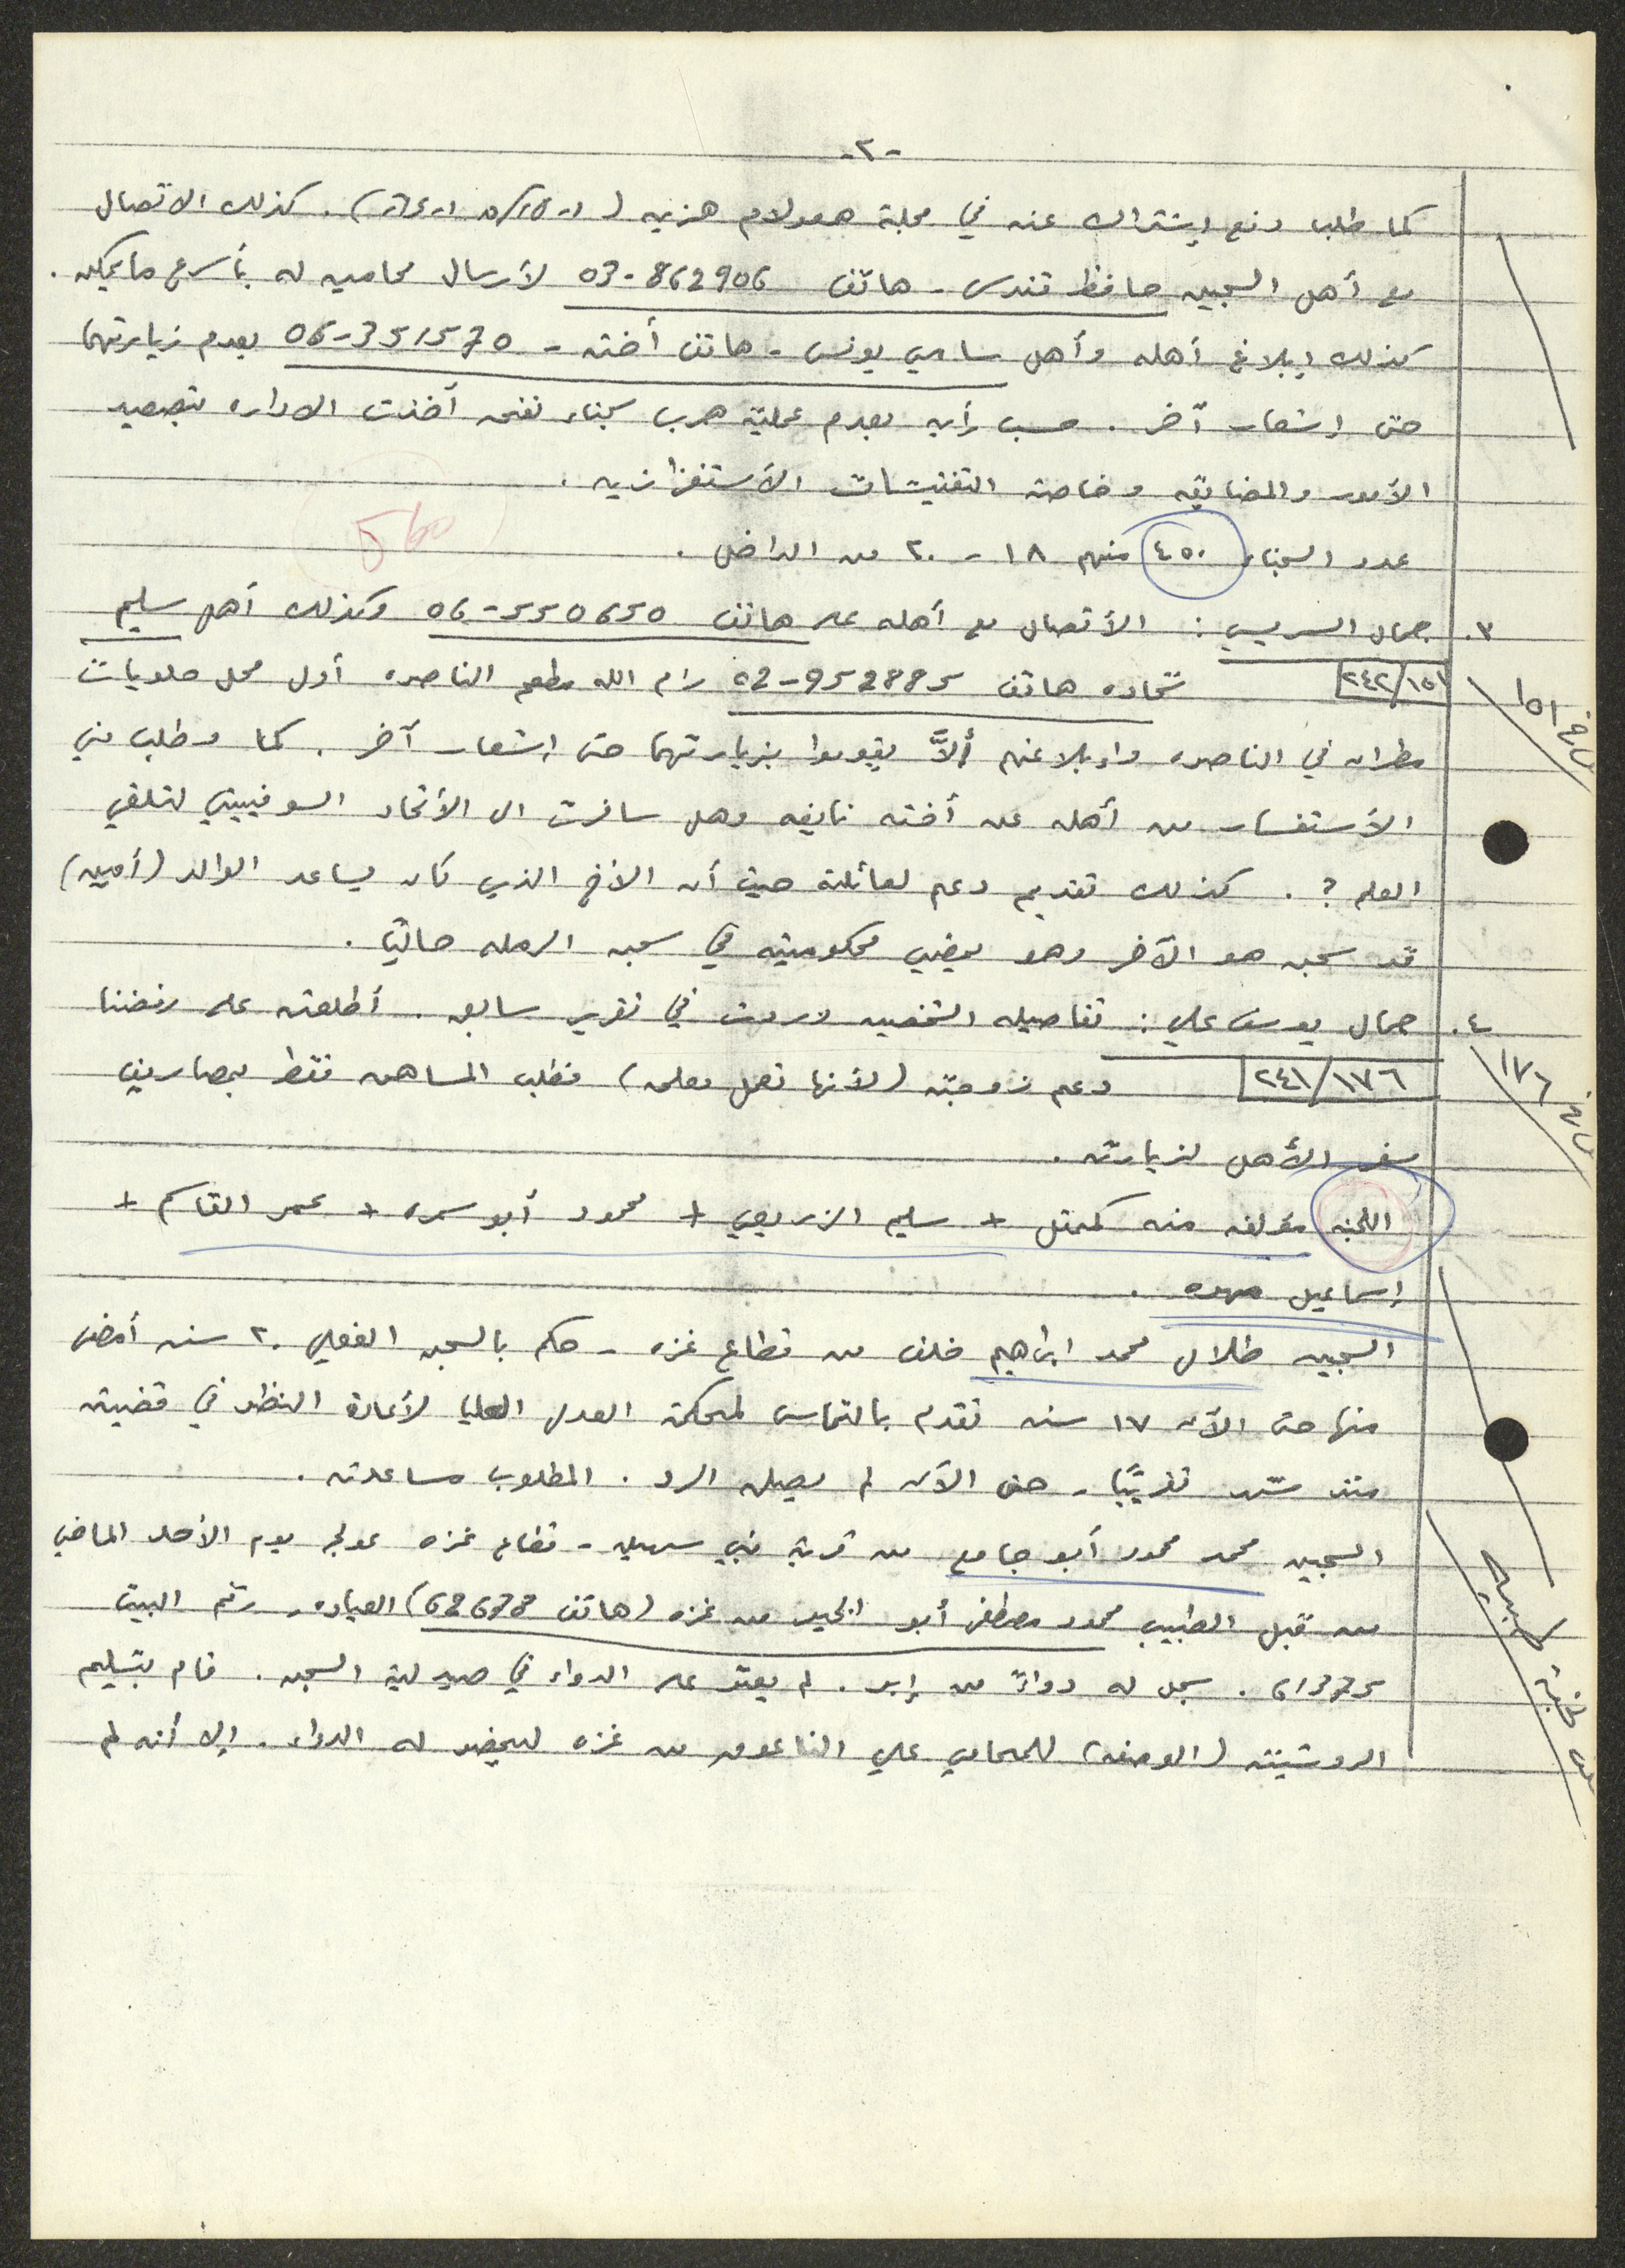 -٢-
كما طلب دفع إشتراك عنه في مجلة هعولام هزيه (העולם הזה). كذلك الاتصال
مع أهل السجين حافظ قندس - هاتف 03-862906 لأرسال محاميه له بأسرع ما يمكن.
كذلك إبلاغ أهله وأهل سامي يونس - هاتف أخته - 06-351570 بعدم زيارتهما
حتى إشعار آخر. حسب رأيه بعدم عملية هرب سجناء نفحه أخذت الاداره بتصعيد
الأمور والمضايقه وخاصة التفتيشات الأستفزازيه.
عدد السجناء ٤٥٠ منهم ١٨ - ٢٠ من الداخل.
560
٣. جمال السريسي: الأتصال مع أهله على هاتف 06-550650 وكذلك أهل سليم
٢٤٢/١٥١ شحاده هاتف 02-952885 رام الله مطعم الناصره أول محل حلويات
١٥١
مطران في الناصره وابلاغهم ألاَّ يقوموا بزيارتهما حتى إشعار آخر. كما وطلب مني
الأستفسار من أهله عن أخته نايفه وهل سافرت الى الأتحاد السوفييتي لتلقي
العلم؟. كذلك تقديم دعم لعائلته حيث أن الأخ الذي كان يساعد الوالد (أمين)
قد سجن هو الآخر وهو يمضي محكوميته في سجن الرمله حاليًا.
٤. جمال يوسف علي: تفاصيله الشخصيه وردت في تقرير سابق. أطلعته على رفضنا
٢٤١/١٧٦ دعم زوجته (لأنها تعمل معلمه) فطلب المساهمه فقط بمصاريف
١٧٦
سفر الأهل لزيارته.
اللجنه مؤلفه منه كممثل + سليم الزريعي + محمود أبو سمره + عمر القاسم +
إسماعيل مهره.
السجين طلال محمد ابراهيم خلف من قطاع غزه - حكم بالسجن الفعلي ٢٠ سنه أمضى
منها حتى الآن ١٧ سنه تقدم بالتماس لمحكمة العدل العليا لأعادة النظر في قضيته
منذ شهر تقريبًا - حتى الآن لم يصله الرد. المطلوب مساعدته.
السجين محمد محمود أبو جامع من قرية بني سهيله - قطاع غزه عولج يوم الأحد الماضي
من قبل الطبيب محمود مصطفى أبو الخير من غزه (هاتف 62678) العياده، رقم البيت
61775. سجل له دواءً من إبر. لم يعثر على الدواء في صيدلية السجن. قام بتسليم
الروشيته (الوصفه) للمحامي علي الناعوق من غزه ليحضر له الدواء. إلا أنه لم